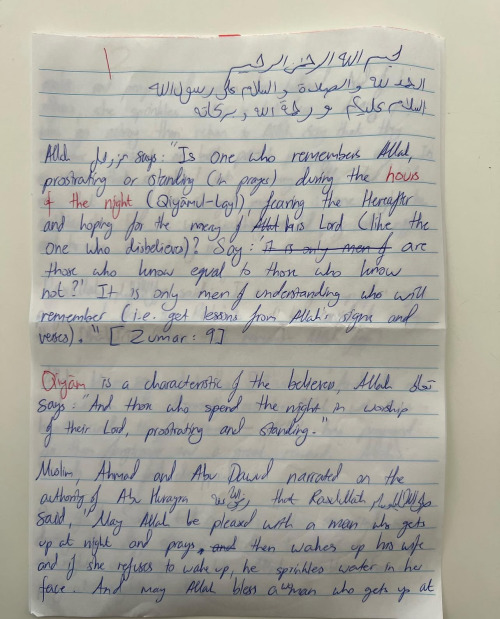 1
بسم الله الرحمن الرحيم
الحمد لله والصلاة والسلام على رسول الله
السلام عليكم ورحمة الله وبركاته
Allah عز وجل says: "Is one who remembers Allah,
prostrating or standing (in prayer) during the hours
of the night (Qiyāmul-Layl), fearing the Hereafter
and hoping for the mercy of Allah his Lord (like the
one who disbelieves)? Say: 'It is only men of are
those who know equal to those who know
not?' It is only men of understanding who will
remember (i.e. get lessons from Allah's signs and
verses)." [Zumar: 9]
Qiyām is a characteristic of the believers, Allah تعالى
says: "And those who spend the night in worship
of their Lord, prostrating and standing."
Muslim, Ahmad and Abu Dawud narrated on the
authority of Abu Hurayra رضي الله عنه that Rasulillah صلى الله عليه وسلم
said, "May Allah be pleased with a man who gets
up at night and prays, and then wakes up his wife
and if she refuses to wake up, he sprinkles water in her
face. And may Allah bless a woman who gets up at